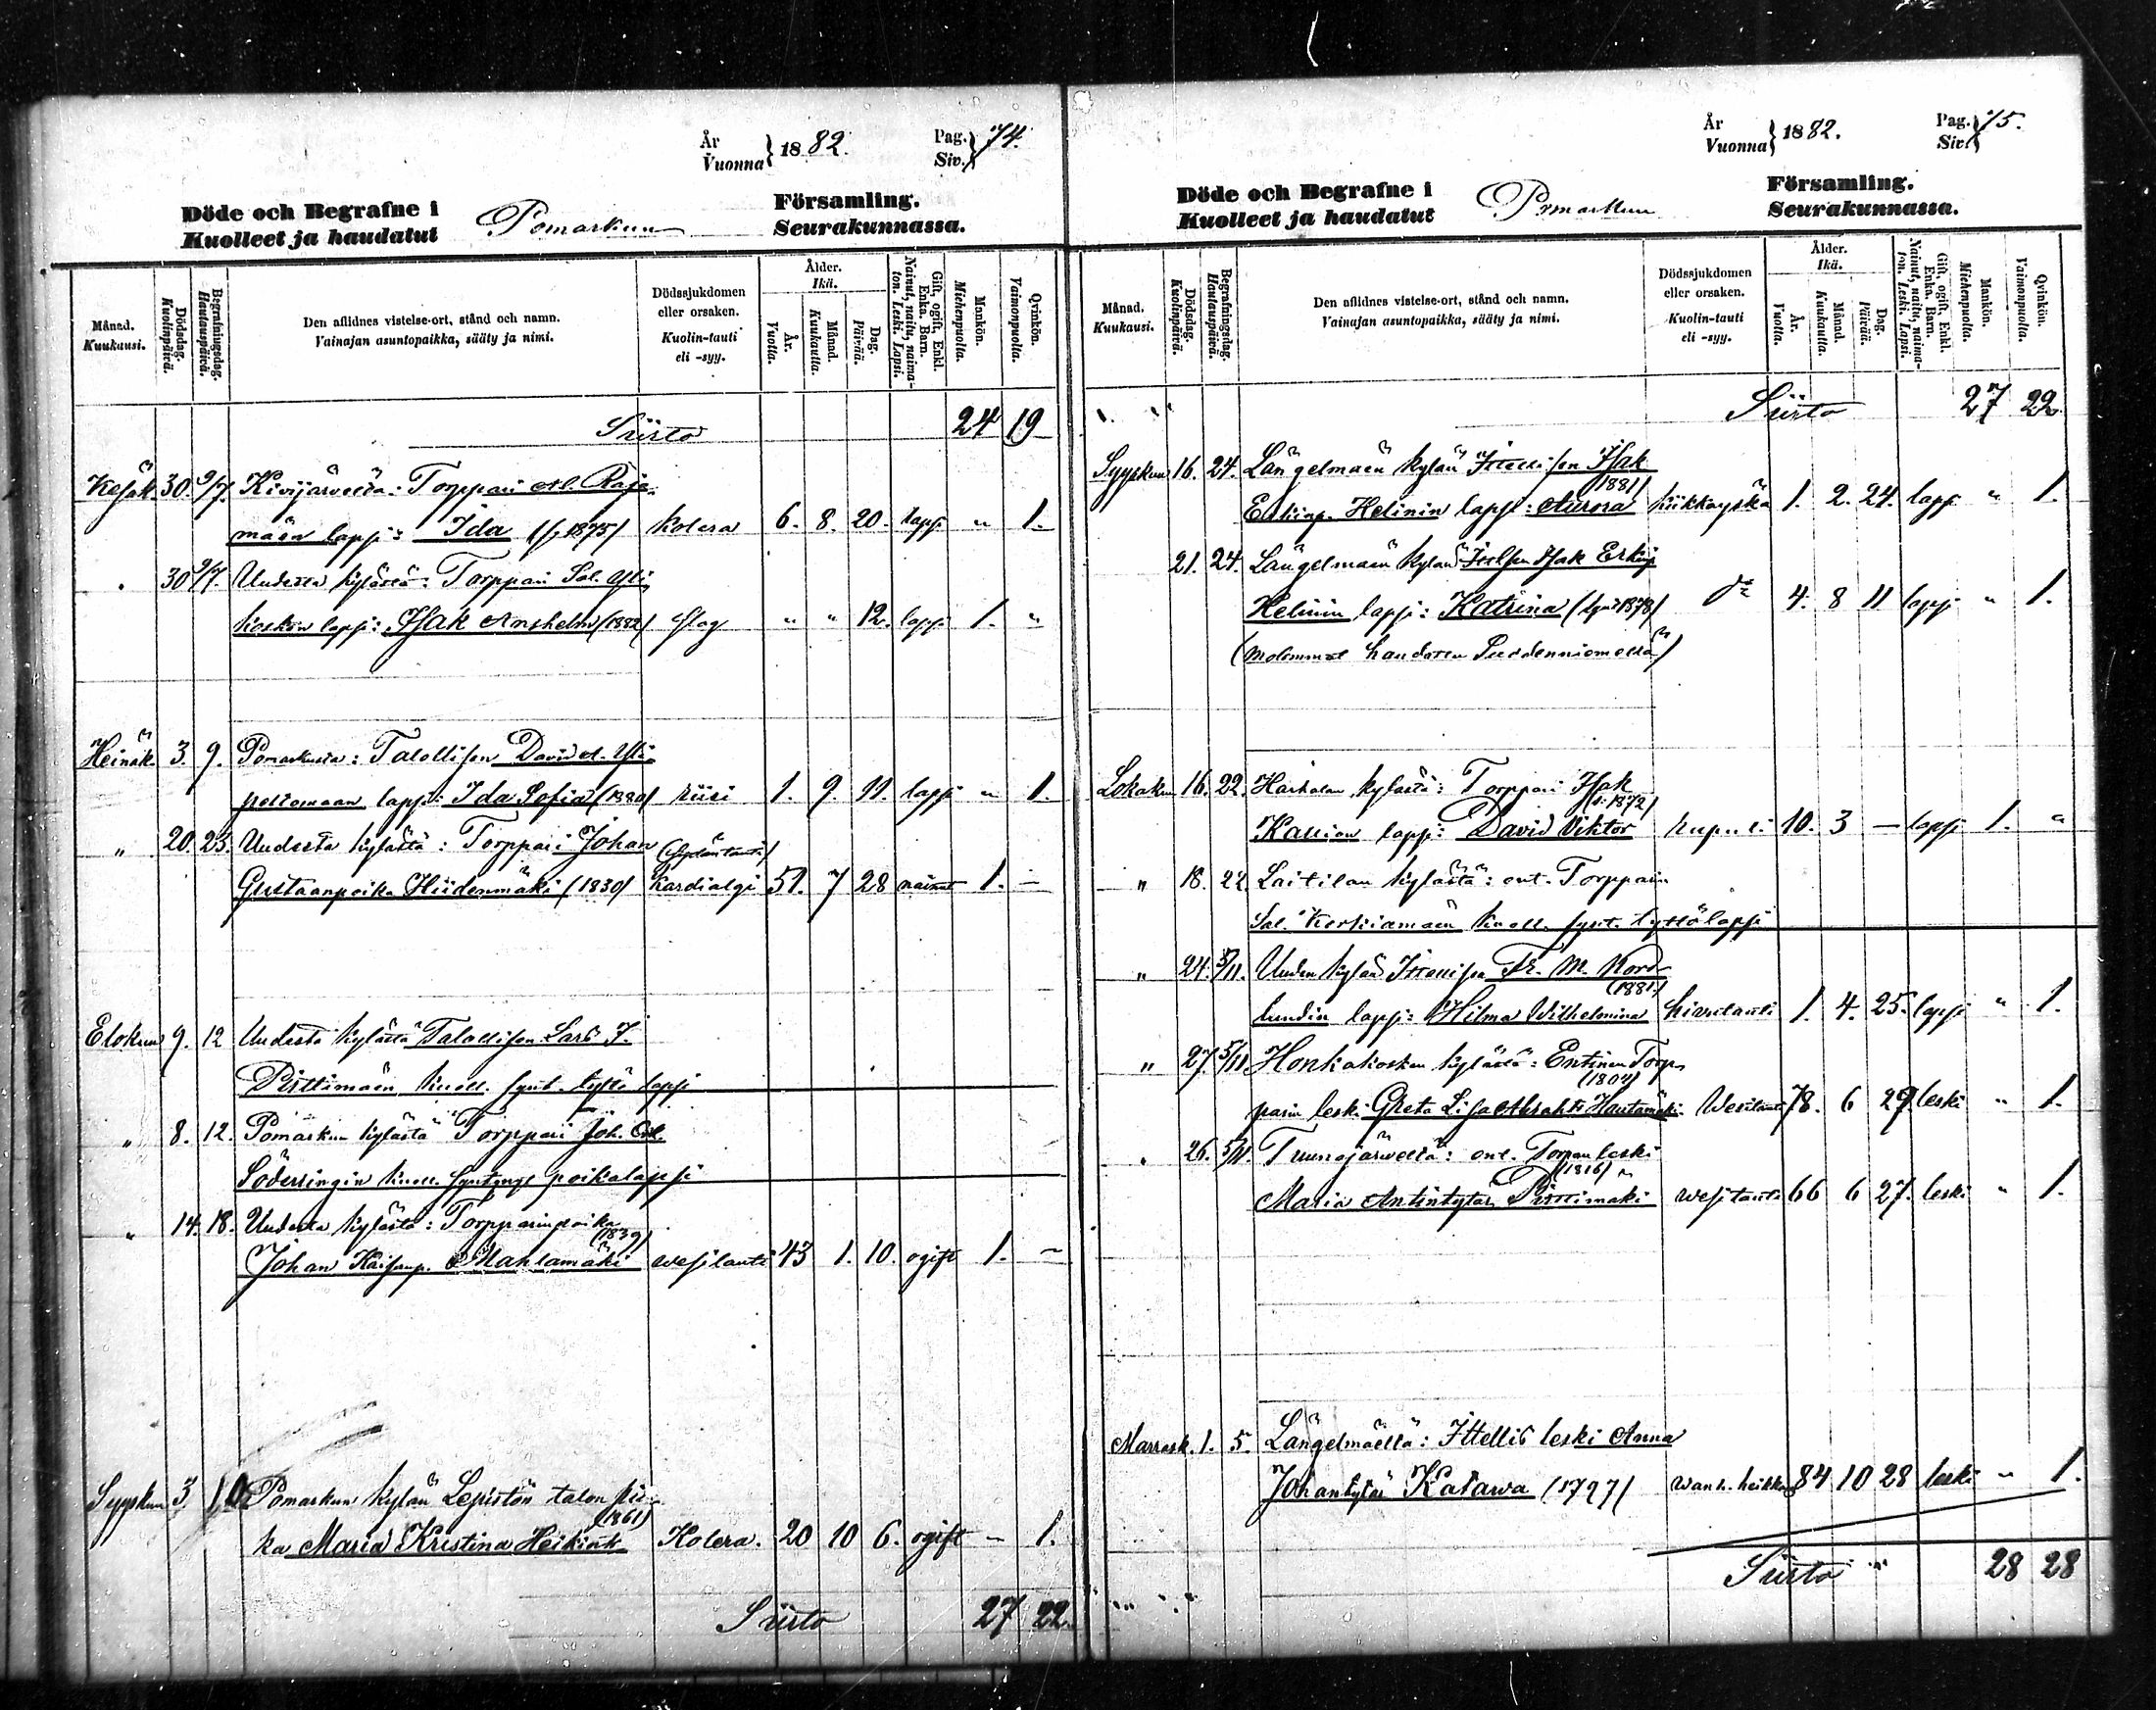 År
Vuonna } 1882.
Pag.
Siv. } 74.
Döde och Begrafne i
Kuolleet ja haudatut
Pomarkun
Församling.
Seurakunnassa.
Månad.
Kuukausi.
Dödsdag.
Kuolinpäivä.
Begrafningsdag.
Hautauspäivä.
Den aflidnes vistelse-ort, stånd och namn.
Vainajan asuntopaikka, sääty ja nimi.
Dödssjukdomen
eller orsaken.
Kuolin-tauti
eli -syy.
Ålder.
Ikä.
År.
Vuotta.
Månad.
Kuukautta.
Dag.
Päivää.
Gift, ogift, Enkl.
Enka. Barn.
Nainut, naitu, naima-
ton. Leski. Lapsi.
Mankön.
Miehenpuolta.
Qvinkön.
Vaimonpuolta.
Siirto 24 19
Kesäk. 30. 9/7. Kivijärveltä: Torppari Raja-
mäen lapsi: Ida (s. 1875) Kolera 6. 8. 20. lapsi " 1.
" 30 9/7. Uudesta kylästä: Torppari Sal. Yli
kosken lapsi: Isak Anshelm (1882) slag " " 12. lapsi 1. "
Heinäk. 3. 9. Pomarkusta: Talollisen David Yli
peltomaan lapsi: Ida Sofia (1880) riisi 1. 9. 11. lapsi " 1.
" 20. 23. Uudesta kylästä: Torppari Johan (sydäntauti)
Gustaanpoika Hiidenmäki (1830) Kardialgi 51. 7 28 nainut 1. –
Elokuu 9. 12 Uudesta kylästä Talollisen Lars J.
Pirttimäen kuoll. synt. tyttö lapsi
" 8. 12. Pomarkun kylästä Torppari Joh.
Söderringin kuoll. syntynyt poikalapsi
" 14. 18. Uudesta kylästä: Torpparinpoika
(1839)
Johan Kaisanp. Mahlamäki vesitauti 43 1. 10. ogift 1. –
Syyskuu 3 10 Pomarkun kylän Lepistön talon pii-
(1861)
ka Maria Kristina Heikint. Kolera. 20 10 6. ogift – 1.
Siirto 27 22.
År
Vuonna } 1882.
Pag.
Siv. } 75.
Döde och Begrafne i
Kuolleet ja haudatut
Pomarkun
Församling.
Seurakunnassa.
Månad.
Kuukausi.
Dödsdag.
Kuolinpäivä.
Begrafningsdag.
Hautauspäivä.
Den aflidnes vistelse-ort, stånd och namn.
Vainajan asuntopaikka, sääty ja nimi.
Dödssjukdomen
eller orsaken.
Kuolin-tauti
eli -syy.
Ålder.
Ikä.
År.
Vuotta.
Månad.
Kuukautta.
Dag.
Päivää.
Gift, ogift, Enkl.
Enka. Barn.
Nainut, naitu, naima-
ton. Leski. Lapsi.
Mankön.
Miehenpuolta.
Qvinkön.
Vaimonpuolta.
Siirto 27 22
Syyskuu 16. 24. Längelmäen kylän Ittellisen Isak
(1881)
Erkinp. Helinin lapsi: Aurora hinkuyskä 1. 2. 24. lapsi " 1.
21. 24. Längelmäen kylän Itells. Isak Erkinp
Helinin lapsi: Katrina (1878) d:o 4. 8 11 lapsi " 1.
(molemmat haudatan)
Lokakuu 16. 22. Harhalan kylästä: Torppari Isak
(s. 1872)
Kallion lapsi: David Viktor rupuli 10. 3 — lapsi 1. "
" 18. 22 Laitilan kylästä: ent. Torpparin
Sal. Korkiamäen kuoll. synt. tyttölapsi
" 24. 5/11. Uuden kylän Ittellisen Fr. M. Nord-
(1881)
lundin lapsi: Hilma Wilhelmina hivutauti 1. 4. 25. lapsi " 1.
" 27 5/11 Honkakosken kylästä: Entinen Torp-
(1804)
parin leski Greta Lisa Abrahti Hautamäki Wesitauti 78. 6 29. leski " 1.
" 26. 5/11. Tuunajärveltä: ent. Torpan leski
(1816)
Maria Antintytär Pirttimäki vesitauti 66 6 27. leski " 1.
Marrask. 1. 5. Längelmäeltä: Ittellis leski Anna
Johantytär Katawa (1797) wanh. heikkous 84 10 28 leski " 1.
Siirto " 28 28